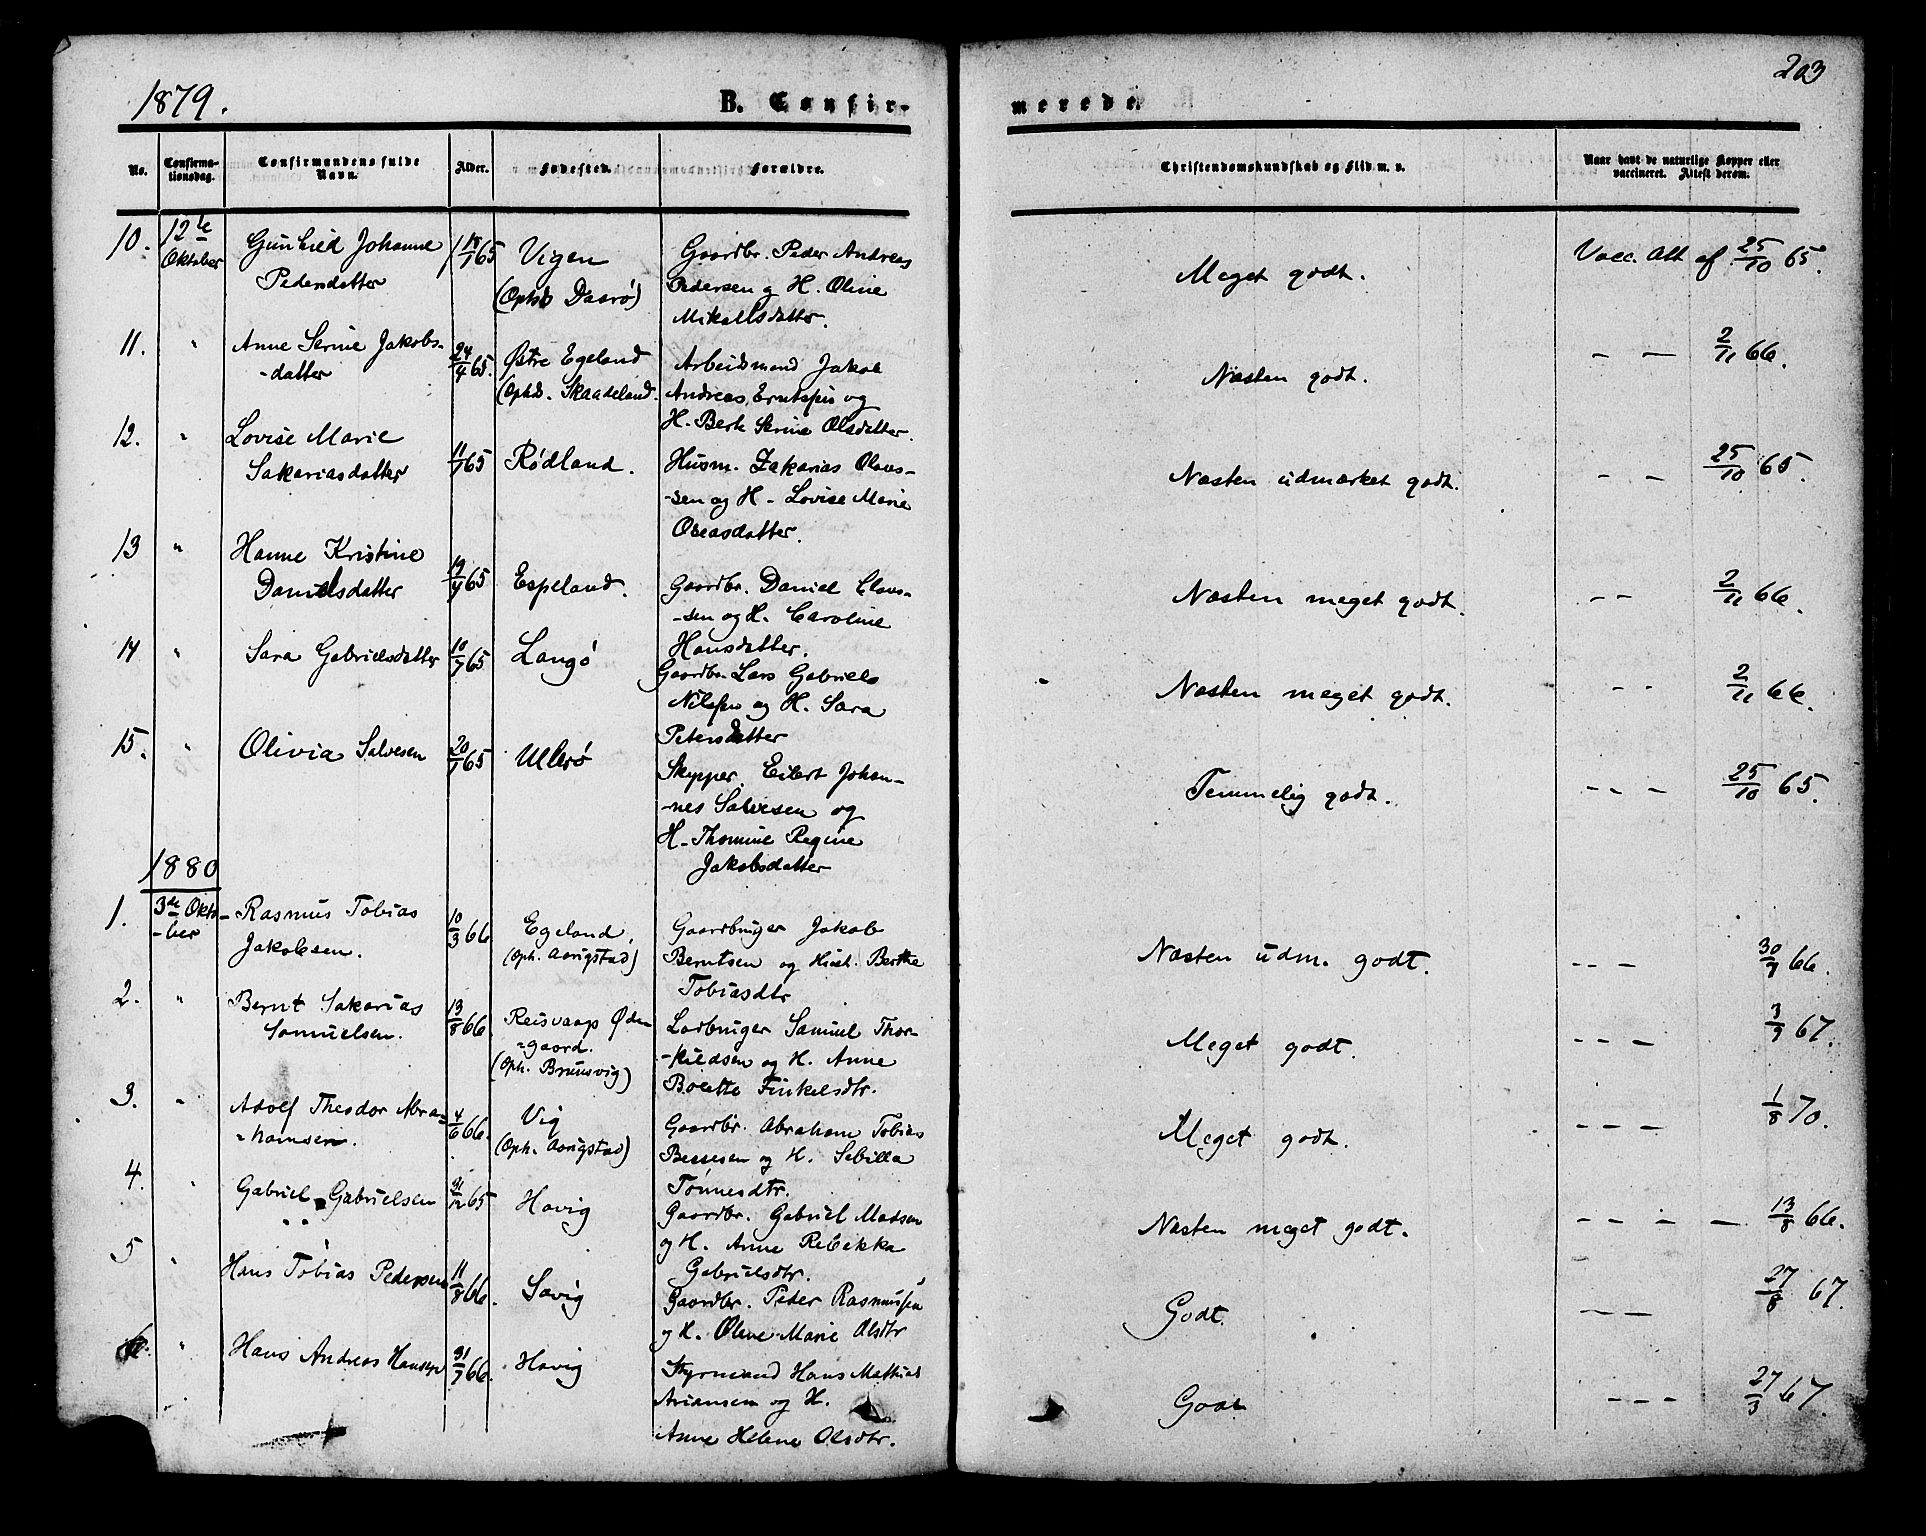 203
1879.
B. Confir-
merede.
No.
Confirma-
tionsdag.
Confirmandens fulde
Navn.
Alder.
Fødested.
Forældre.
Christendomskundskab og Flid m. v.
Naar havt de naturlige Kopper eller
vaccineret. Attest derom.
10. 12te Gunhild Johanne 18/1 65 Vigen Gaardbr. Peder Andreas
Oktober Pedersdatter (Ophs Daarø) Pedersen og H. Oline
Mikalsdatter.
Meget godt. Vacc. Att af 25/10 65.
11. " Anne Serine Jakobs- 24/4 65. Østre Egeland Arbeidsmand Jakob
-datter (Ophs. Skaadeland. Andreas Erntsen og
H. Berte Serine Olsdatter.
Næsten godt. — — 2/11 66.
12. " Lovise Marie 11/7 65 Rødland. Husm. Zakarias Olaus-
Sakariasdatter -sen og H. Lovise Marie
Oseasdatter.
Næsten udmærket godt. - - 25/10 65.
13 " Hanne Kristine 19/4 65 Espeland. Gaardbr. Daniel Claus-
Danielsdatter -sen og H. Caroline
Hansdatter.
Næsten meget godt. - - 2/11 66.
14 " Sara Gabrielsdatter 10/7 65 Langø Gaardbr. Lars Gabriels
Nilssen og H. Sara
Petersdatter
Næsten meget godt. - - 2/11 66.
15. " Olivia Salvesen 20/1 65 Ullerø Skypper Eilert Johan-
-nes Salvesen og
H. Thomine Regine
Jakobsdatter
Temmelig godt. - - - 25/10 65.
1880
1. 3de Okto- Rasmus Tobias 10/3 66 Egeland, Gaardbruger Jakob
-ber Jakobsen. (Oph. Aarigstad) Berntsen og Hust. Berthe
Tobiasdtr
Næsten udm. godt. - - - 30/7 66.
2. " Bernt Sakarias 13/8 66. Reisvaags Øde- Lodbruger Samuel Thor-
Samuelsen. -gaard. -kildsen og H. Anne
(Oph. Bruusvig) Bolette Finkelsdtr.
Meget godt. - - - 3/9 67.
3. " Adolf Theodor Abra- 4/6 66. Vig Gaardbr. Abraham Tobias
-hamsen. (Oph. Aarigstad) Bessesen og H. Sibilla
Tønnesdtr.
Meget godt. - - - 1/8 70.
4. " Gabriel Gabrielsen 31/12 65 Havig Gaardbr. Gabriel Madsen
og H. Anne Rebekka
Gabrielsdtr.
Næsten meget godt. - - - - 13/8 66.
5 " Hans Tobias Pedersen 11/8 66. Savig Gaardbr. Peder Rasmussen
og H. Oline Marie Olsdtr
Godt. - - - 27/8 67.
6. " Hans Andreas Hansen 31/7 66. Havig Styrmand Hans Mathias
Ariansen og H.
Anne Helene Olsdtr.
Godt - - - 27/3 67.